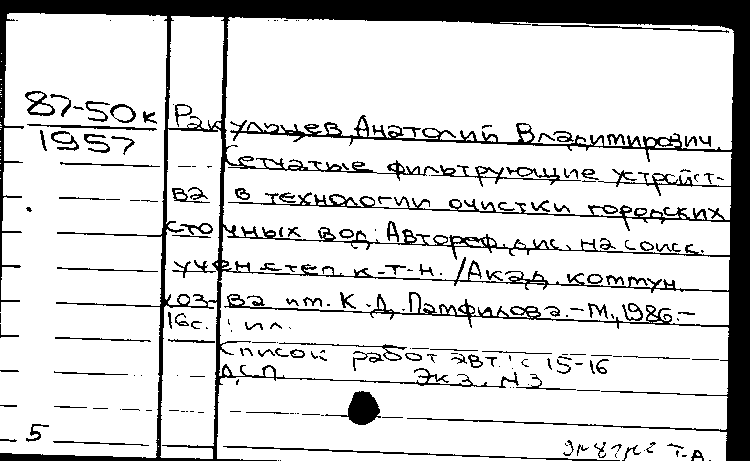 87-50к
1957
Ракульцев, Анатолий Владимирович.
Сетчатые фильтрующие устройст-
ва в технологии очистки городских
сточных вод: Автореф. дис. на соиск.
учен. степ. к.т.н. /Акад. коммун.
хоз-ва им. К.Д. Памфилова.-М., 1986.-
16с. : ил.
Список работ авт.: с 15-16
Д.С.П. Экз. N 3
5
Т.А.